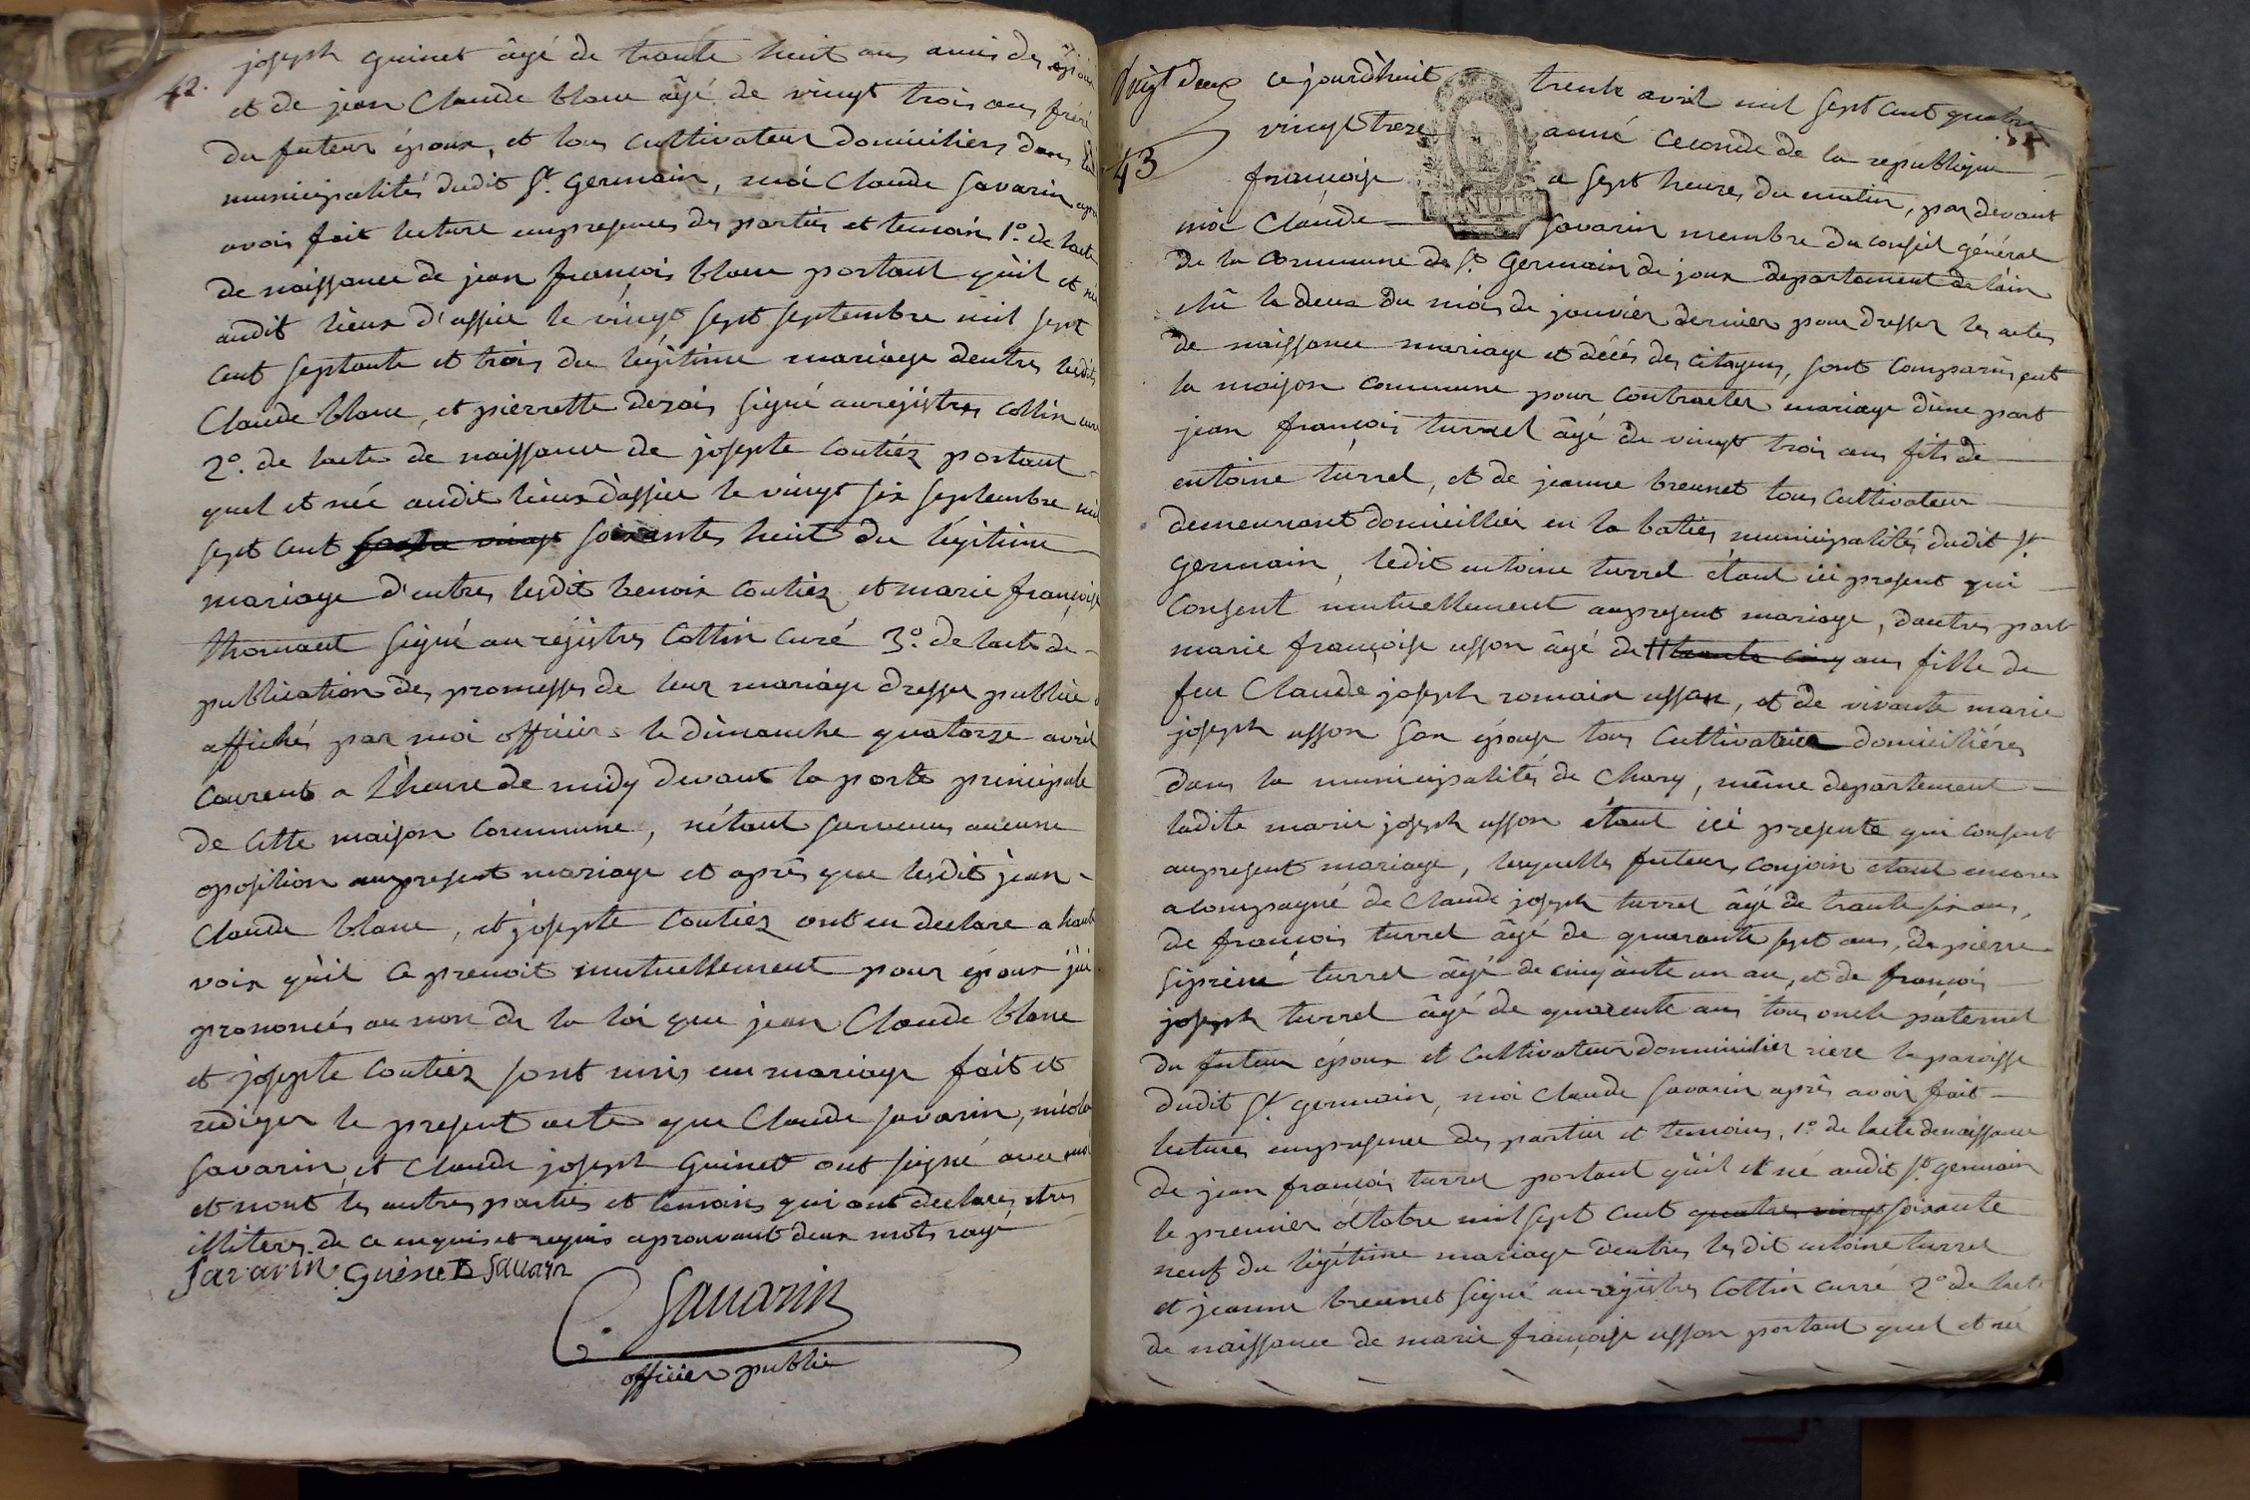 42.
joseph guinet âgé de trante huit ans amis des époux
et de jean Claude blanc âgé de vingt trois ans frère
du futeur époux, et tous cultivateur domiciliers dans lad
municipalités dudit St. germain, moi Claude savarin apré
avois fait lecture enpresence des partiés et temoin 1o. de lacte
de naissance de jean françois blanc portant qu'il et né
audit lieux d'assier le vingt sept septembre mil sept
cent septante et trois du légitime mariage dentres lesdit
Claude blanc, et pierrette dezois signé auregistres collin curé
2o. de lacte de naissance de josepte coutiéz portant
quel et née audit lieux d'assier le vingt six septembre mil
sept cent soixantes huit du légitime
mariage d'entres lesdit benoix coutiéz et marie françoise
thomaut signé au régistres Collin curé 3o. de lacte de
publication des promesses de leur mariage dresser publiée
affichés par moi officier le dimanche quatorze avril
courent a l'heure de midy devant la porte principale
de cette maison commune, nétant survenus aucune
oposition aupresent mariage et après que lesdit jean
Claude blanc, et josepte coutiéz ont eu declare a haute
voix qu'il ce prenoit mutuellement pour époux jai
prononcés au non de la loi que jean Claude blanc
et josepte coutiéz sont unis eu mariage fait et
rediger le present acte que Claude savarin, nicola
savarin, et claude joseph guinet ont signé avec moi
et nont les autres partiés et temoins qui ont declares etres
illiteres de ce enquis et requis aprouvant deux mots rayé
Savarin Guinet Savarin
C. Savarin
officier public
Vingt deux
43
ce jourd'huit trente avril mil sept cent quatre
vingt treze anné ceconde de la republique
françoise a sept heures du matin, par devant
moi Claude Savarin membre du conseil général
de la commune de St. Germain de joux departement de lain
elû le deux du mois de janvier dernier pour dresser les actes
de naissance mariage et décés des citoyens, sont comparus ent
la maison commune pour contracter mariage dune part
jean françois turrel âgé de vingt trois ans fils de
entoine turrel, et de jeanne breunet tous cultivateur
demeurant domicillier en la baties municipalités dudit St.
germain, ledit entoine turrel étant ici present qui
consent mutuellement aupresent mariage, dautres part
marie françoise usson âgé de trante cinq ans fille de
feu Claude joseph romain usson, et de vivante marie
joseph usson son épouse tous cultivateur domiciliéres
dans la municipalités de Chary, même departement
ladite marie joseph usson étant ici presente qui consent
aupresent mariage, lesquelles futeurs conjoin etant encores
acompagné de Claude joseph turrel âgé de trante six ans,
de françois turrel âgé de quarante sept ans, de pierre
siprient turrel âgé de cinqante un an, et de françois
joseph turrel âgé de quarente ans tous oncle paternel
du futeur époux et cultivateur domicilier riere la paroisse
dudit St. germain, moi Claude savarin après avoir fait
lectures enpresence des partie et temoins, 1o. de lacte denaissance
de jean françois turrel portant qu'il et né audit St. germain
le premier octobre mil sept cent quatres vingt soixante
neuf du légitime mariage d'entres lesdit entoine turrel
et jeanne breunet signé auregistres Collin curré 2o de lacte
de naissance de marie françoise usson portant quel et né